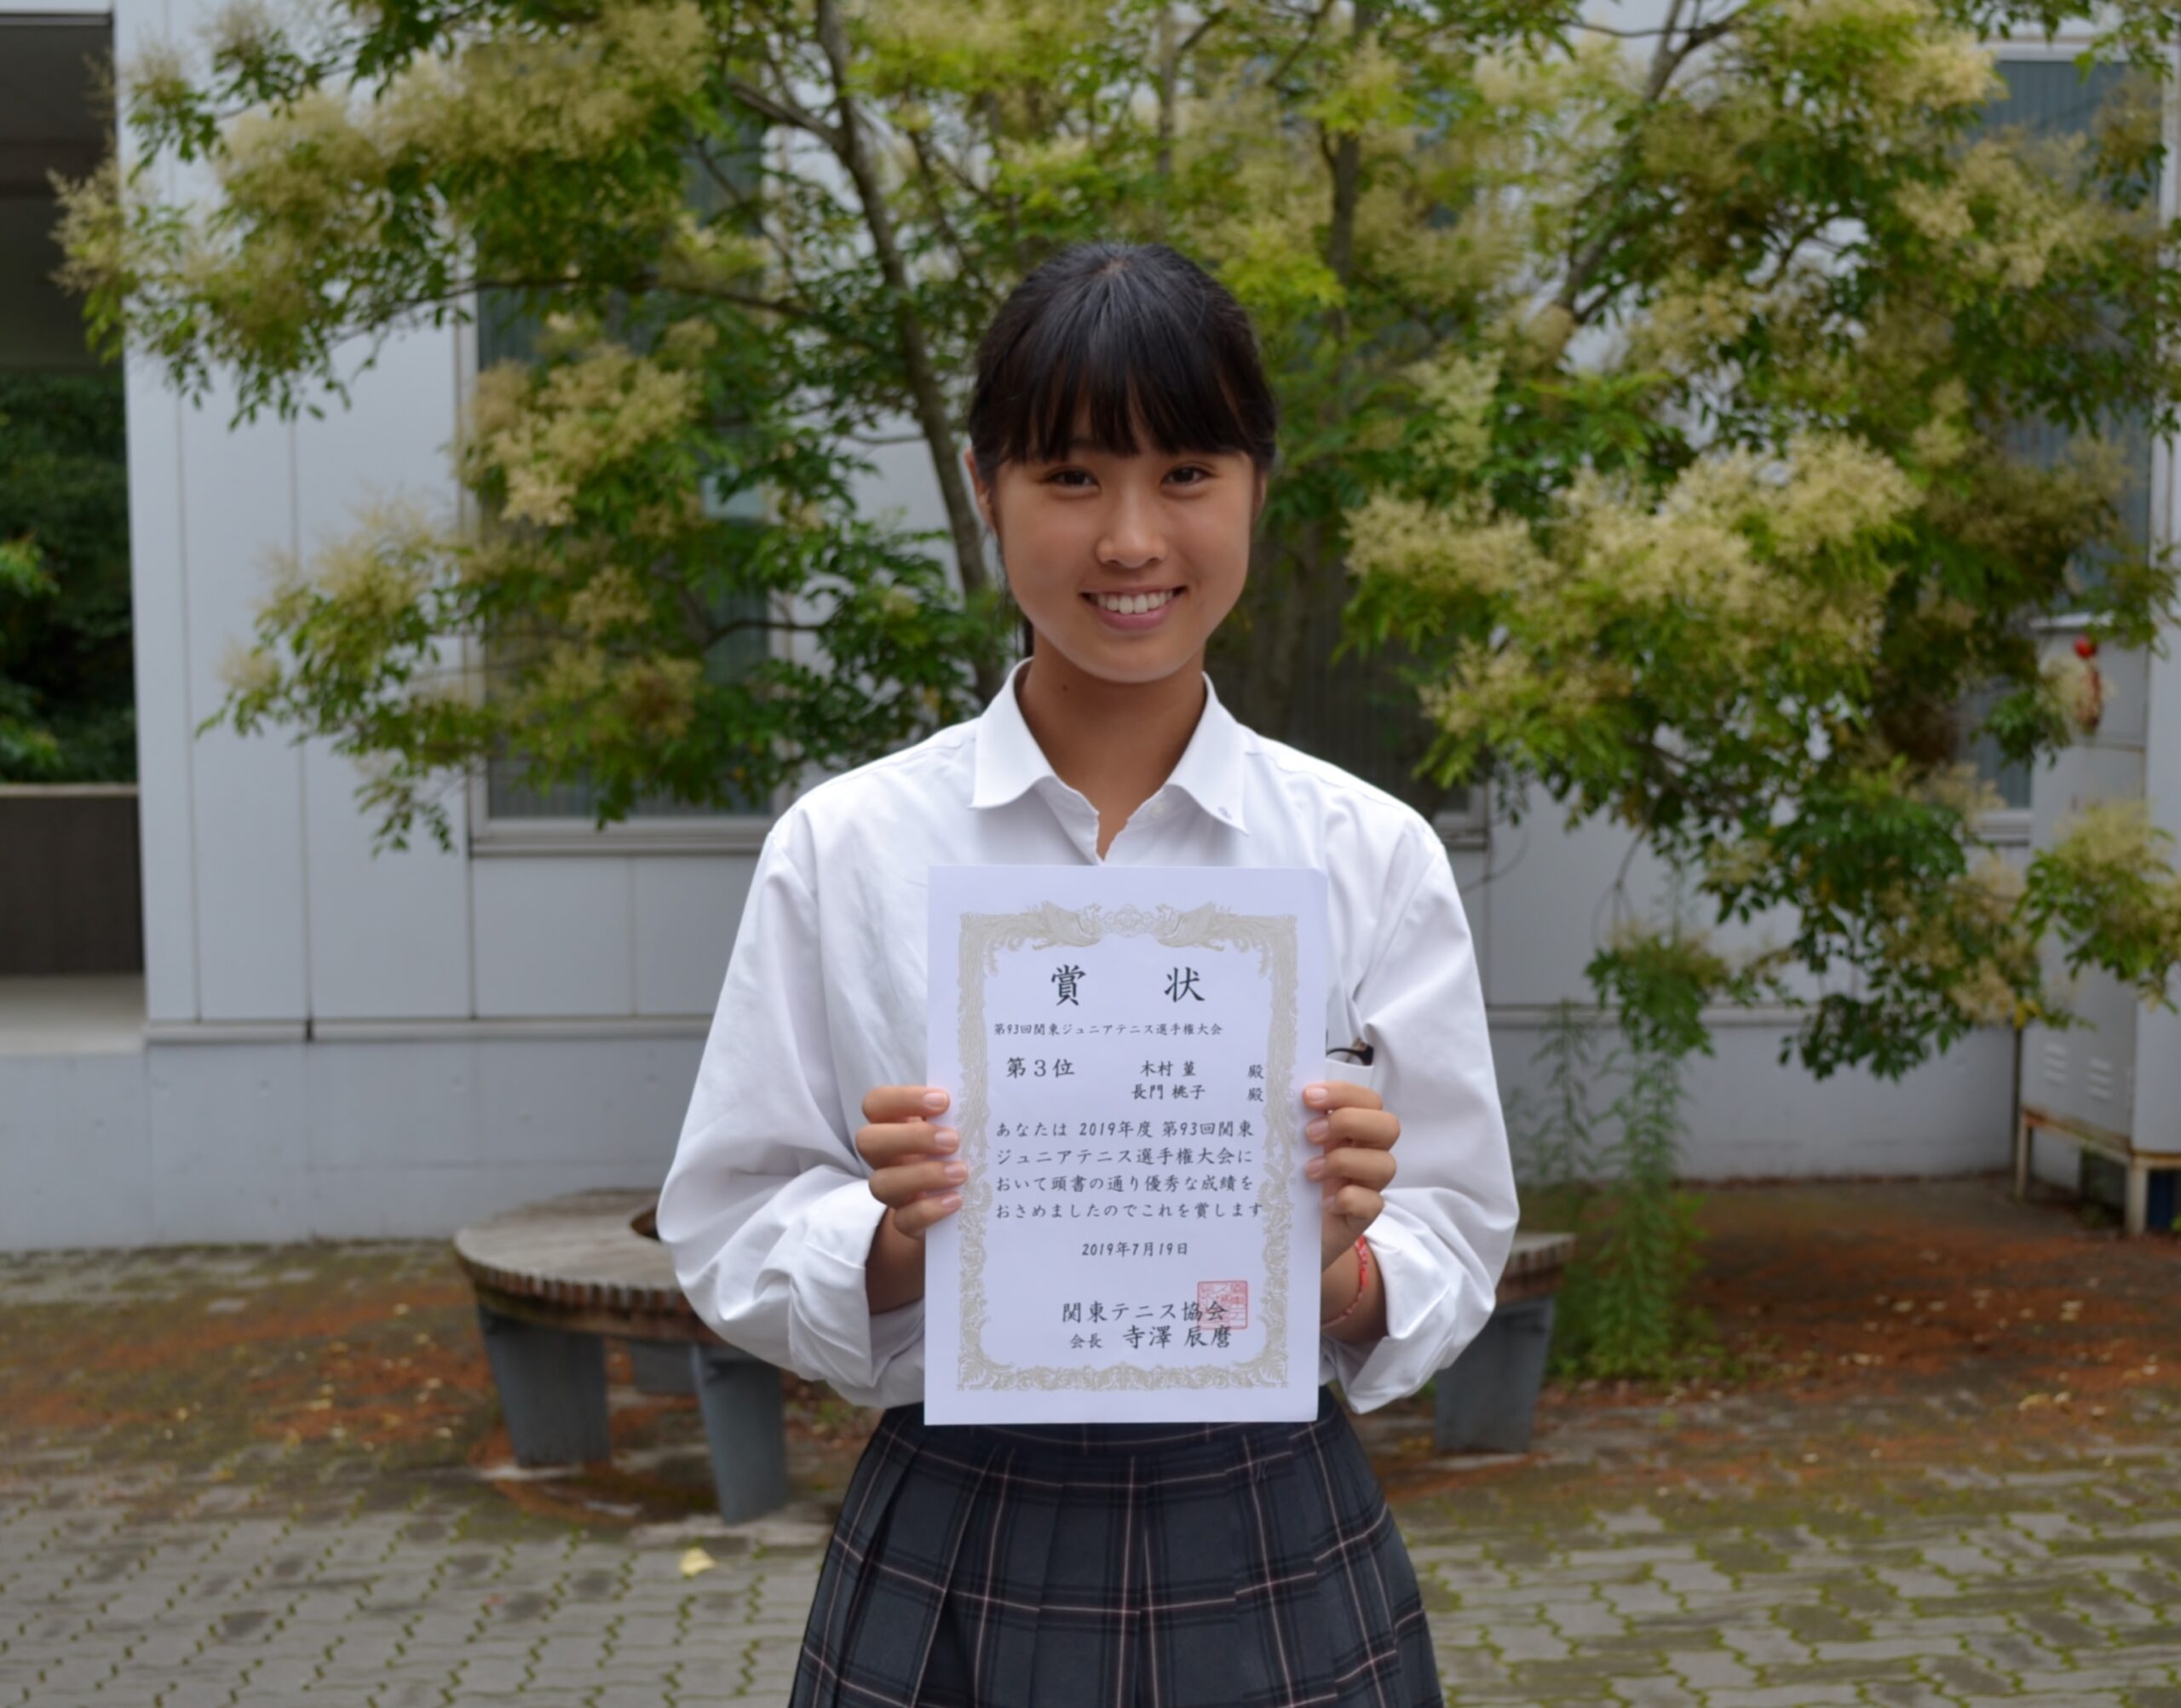 賞 状
第93回関東ジュニアテニス選手権大会
第3位 木村 菫 殿
長門 桃子 殿
あなたは 2019年度 第93回関東
ジュニアテニス選手権大会に
おいて頭書の通り優秀な成績を
おさめましたのでこれを賞します
2019年7月19日
関東テニス協会
会長 寺澤 辰麿